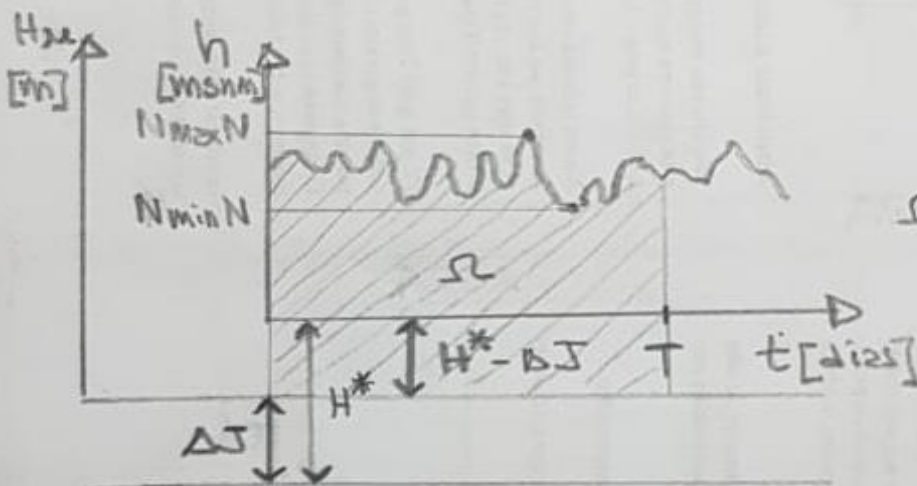 h
[m]
[msnm]
NmaxN
NminN
Ω
H*-ΔJ
T
t [días]
H*
ΔJ